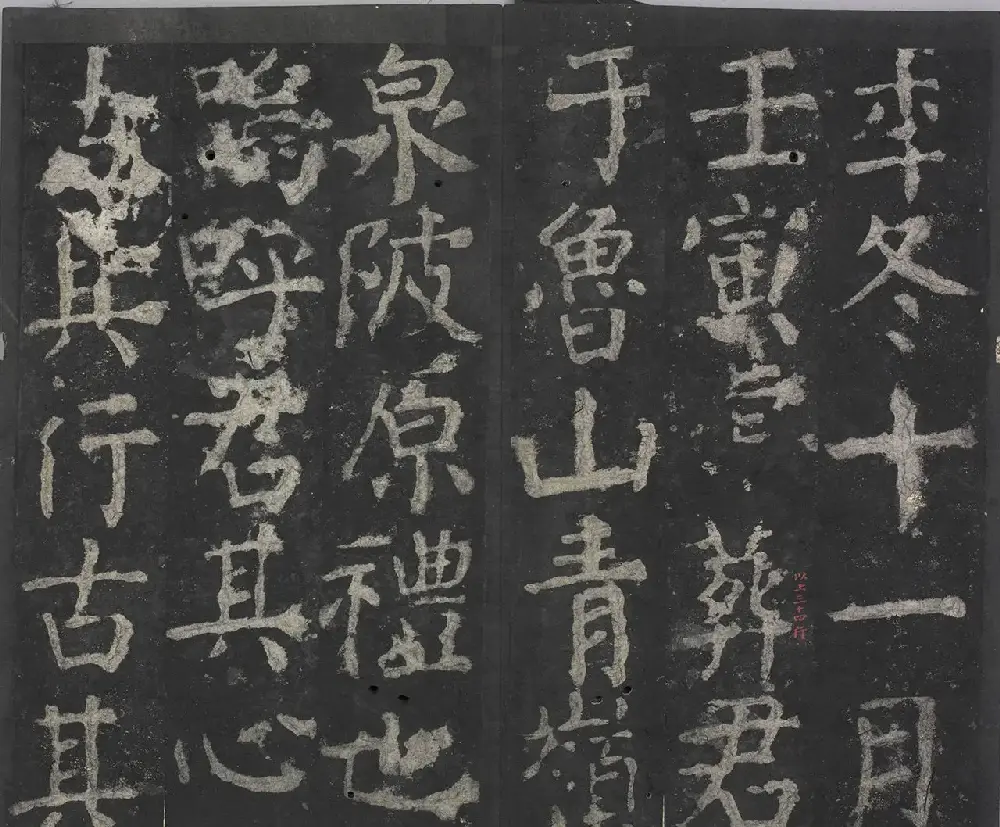 年冬十一月
壬寅葬君
于魯山青嶺
泉陂原禮也
嗚呼君其心
其行古其